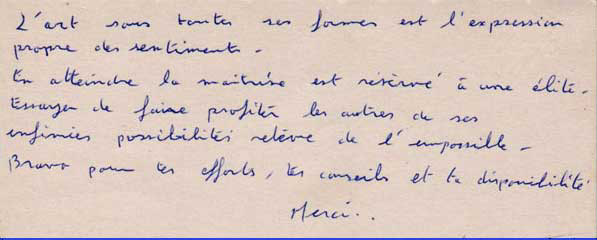 L'art sous toutes ses formes est l'expression
propre des sentiments.
En atteindre la maitrise est réservé à une élite.
Essayer de faire profiter les autres de ses
infinies possibilités relève de l'impossible.
Bravo pour tes efforts, tes conseils et ta disponibilité
Merci..